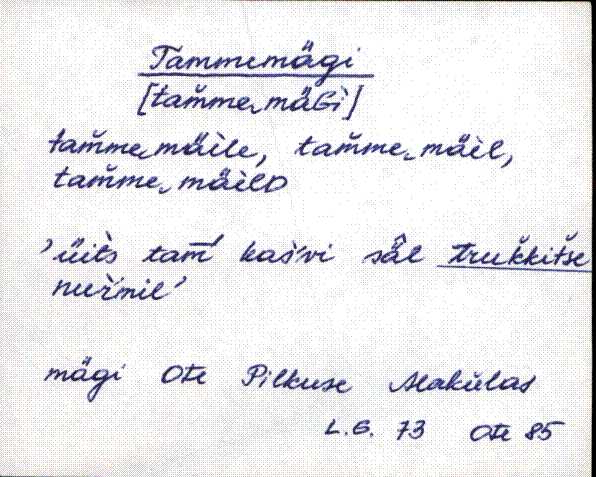 Tammemägi
[tam̌me‿mäGì]
tam̌me‿mäìle, tam̌me‿mäìl,
tam̌me‿mäìlD
’üìts tam̄´ kaśvi säl truǩkitše
nuŕmil’
mägi Ote Pilkuse Alakülas
L.G. 73 Ote 85